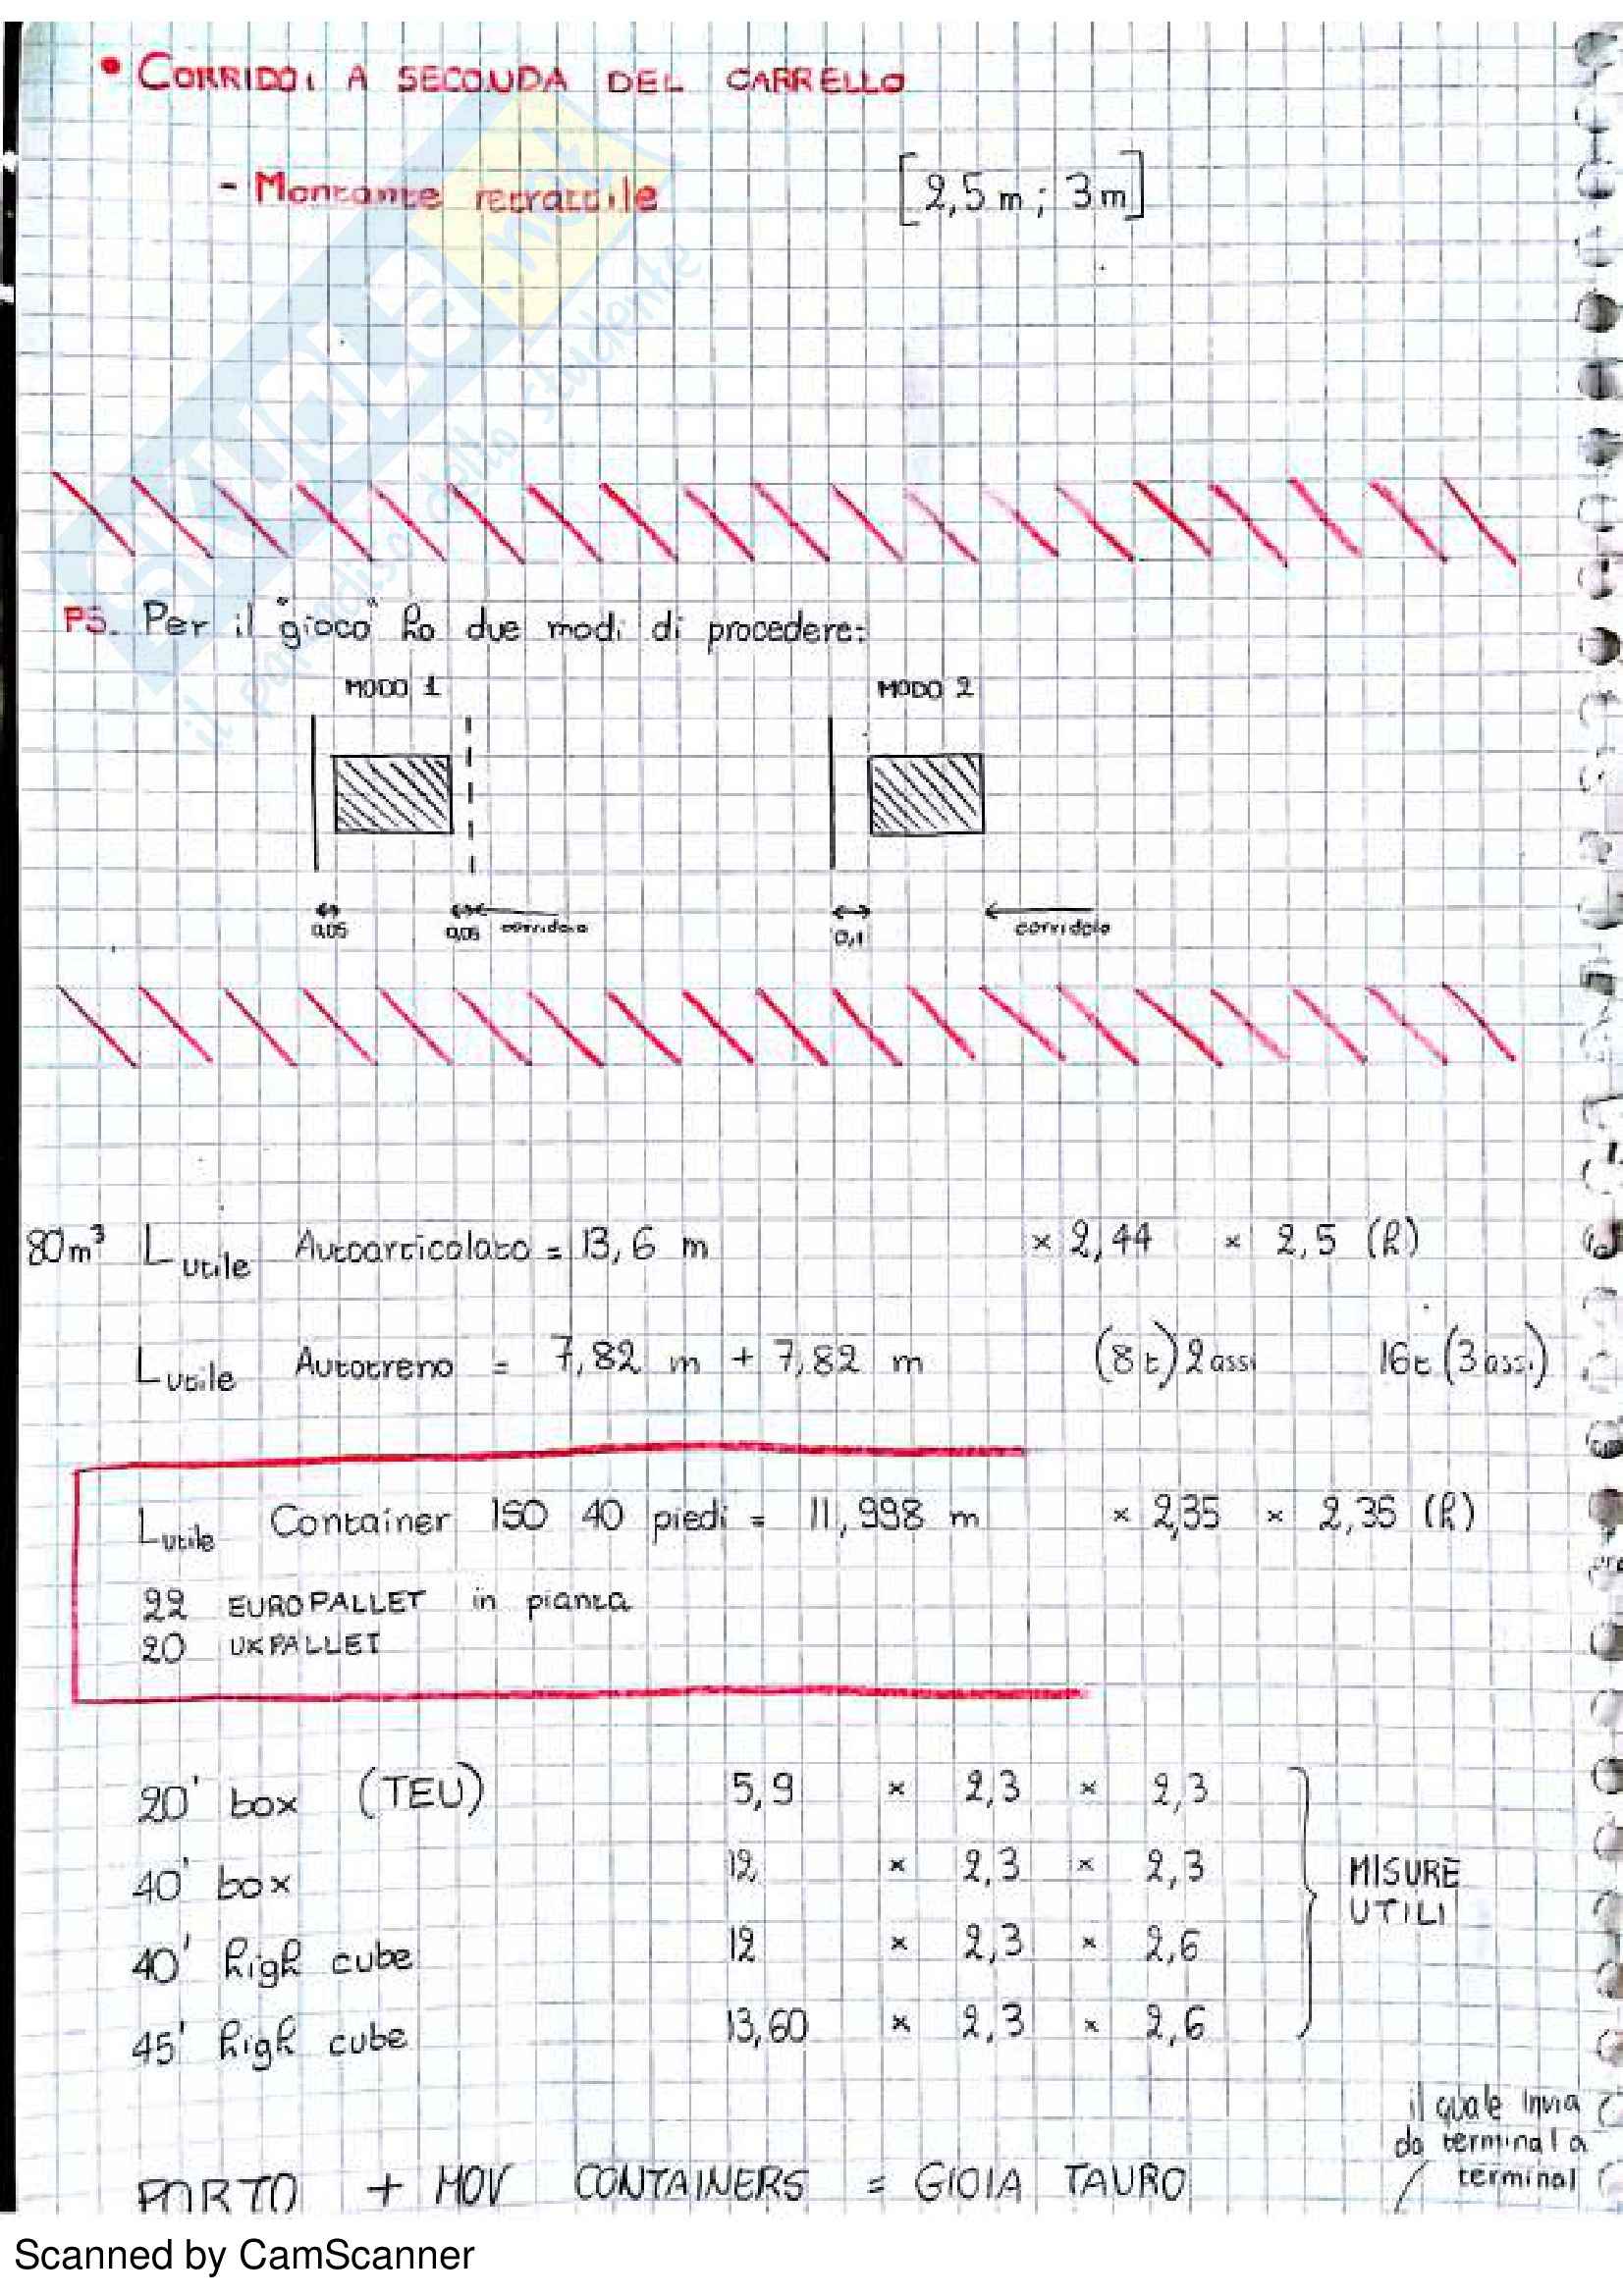 • CORRIDOI A SECONDA DEL CARRELLO
- Montante retrattile [2,5 m ; 3 m]
PS. Per il "gioco" ho due modi di procedere:
MODO 1 MODO 2
0,05 0,05 corridoio 0,1 corridoio
80 m³ L utile Autoarticolato = 13,6 m × 2,44 × 2,5 (h)
L utile Autotreno = 7,82 m + 7,82 m (8 t) 2 assi 16 t (3 assi)
L utile Container ISO 40 piedi = 11,998 m × 2,35 × 2,35 (h)
22 EUROPALLET in pianta
20 UKPALLET
20' box (TEU) 5,9 × 2,3 × 2,3
40' box 12 × 2,3 × 2,3
40' high cube 12 × 2,3 × 2,6
45' high cube 13,60 × 2,3 × 2,6
MISURE
UTILI
il quale invia
da terminal a
terminal
PORTO + MOV CONTAINERS = GIOIA TAURO
SKUOLA.net
il paradiso dello studente
Scanned by CamScanner